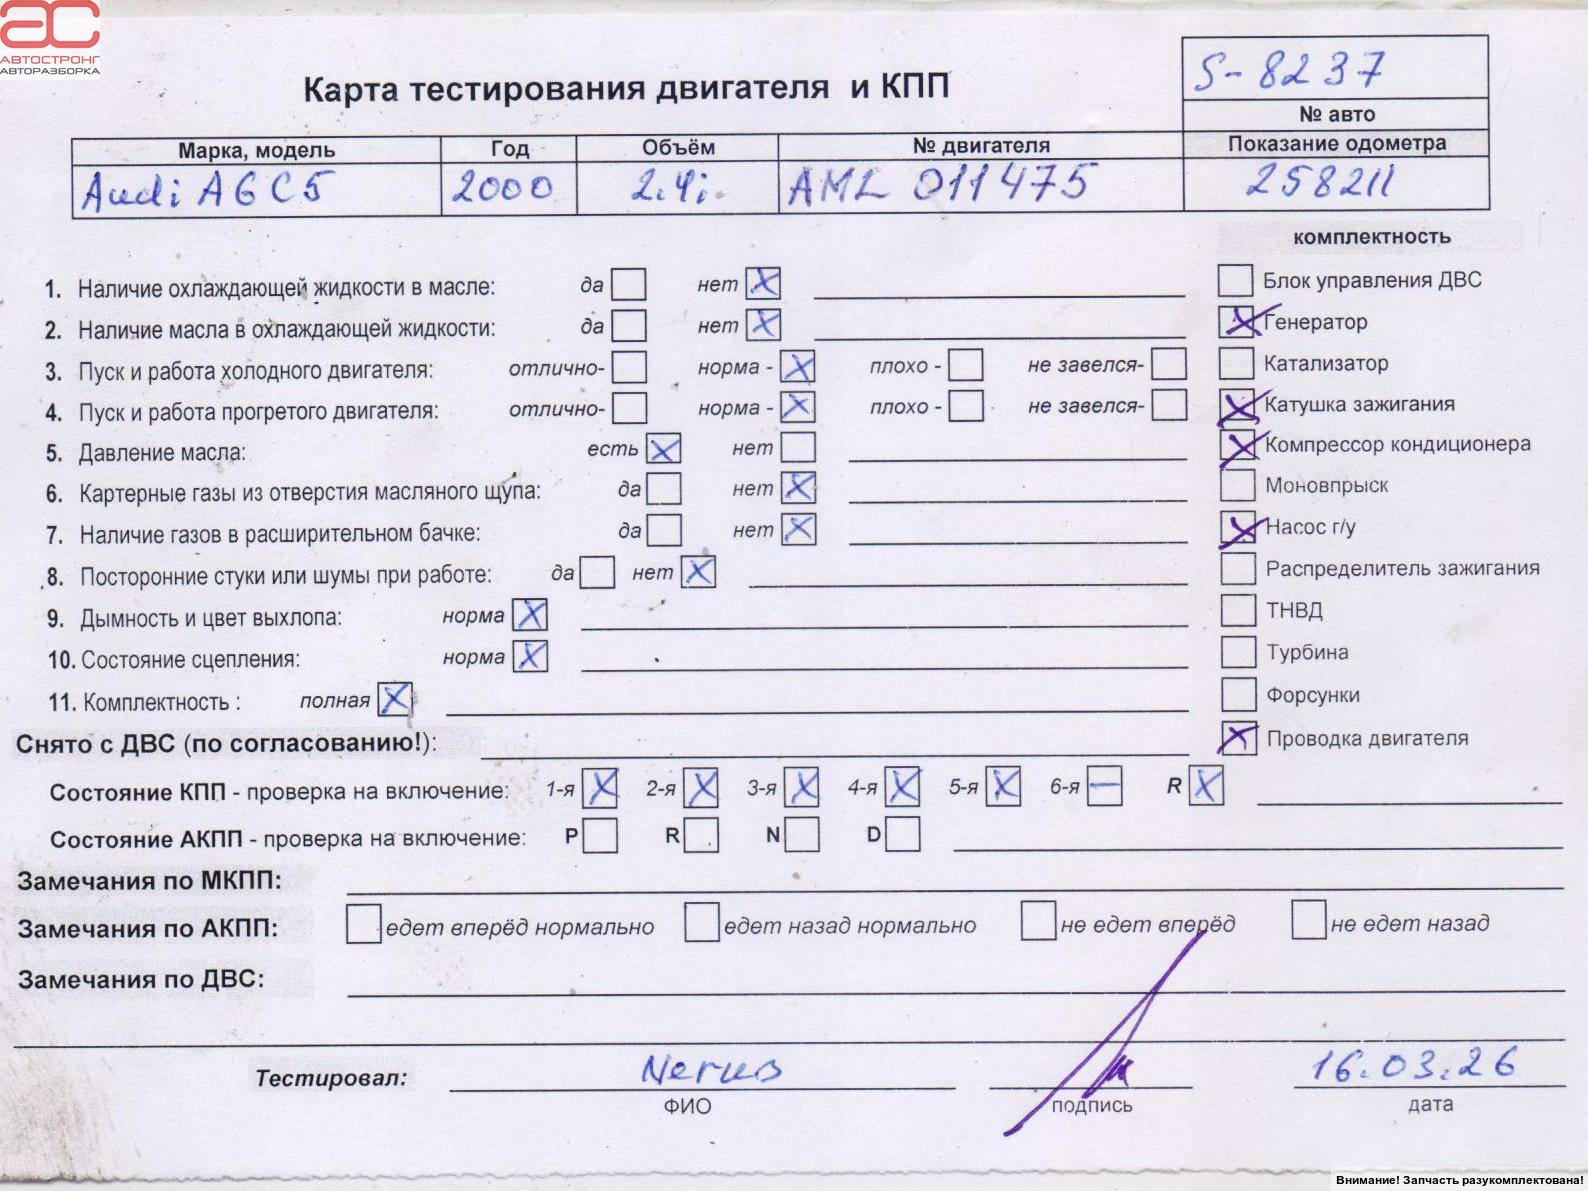 АС
АВТОСТРОНГ
АВТОРАЗБОРКА
Карта тестирования двигателя и КПП
S-8237
№ авто
Марка, модель Год Объём № двигателя Показание одометра
Audi A6 C5 2000 2.4i AML 011475 258211
комплектность
1. Наличие охлаждающей жидкости в масле: да нет X
Блок управления ДВС
2. Наличие масла в охлаждающей жидкости: да нет X
X Генератор
3. Пуск и работа холодного двигателя: отлично- норма - X плохо - не завелся-
Катализатор
4. Пуск и работа прогретого двигателя: отлично- норма - X плохо - не завелся-
X Катушка зажигания
5. Давление масла: есть X нет
X Компрессор кондиционера
6. Картерные газы из отверстия масляного щупа: да нет X
Моновпрыск
7. Наличие газов в расширительном бачке: да нет X
X Насос г/у
8. Посторонние стуки или шумы при работе: да нет X
Распределитель зажигания
9. Дымность и цвет выхлопа: норма X
ТНВД
10. Состояние сцепления: норма X
Турбина
11. Комплектность : полная X
Форсунки
Снято с ДВС (по согласованию!):
X Проводка двигателя
Состояние КПП - проверка на включение: 1-я X 2-я X 3-я X 4-я X 5-я X 6-я — R X
Состояние АКПП - проверка на включение: P R N D
Замечания по МКПП:
Замечания по АКПП: едет вперёд нормально едет назад нормально не едет вперёд не едет назад
Замечания по ДВС:
Тестировал: 16.03.26
ФИО подпись дата
Внимание! Запчасть разукомплектована!